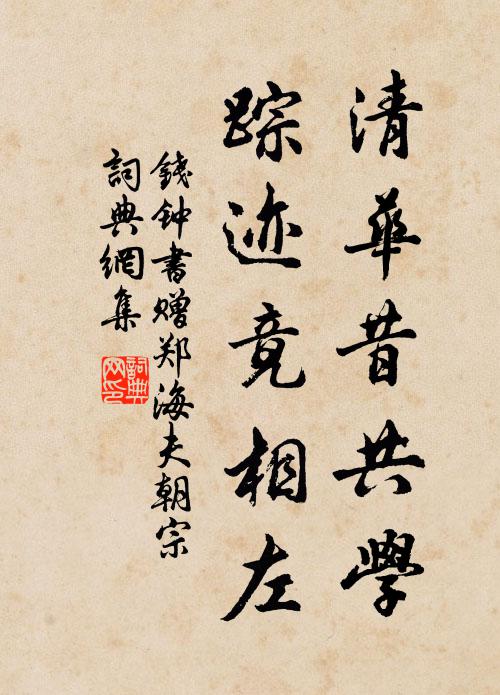 清華昔共學
踪迹竟相左
錢钟書贈郑海夫朝宗
詞典網集
詞典网印